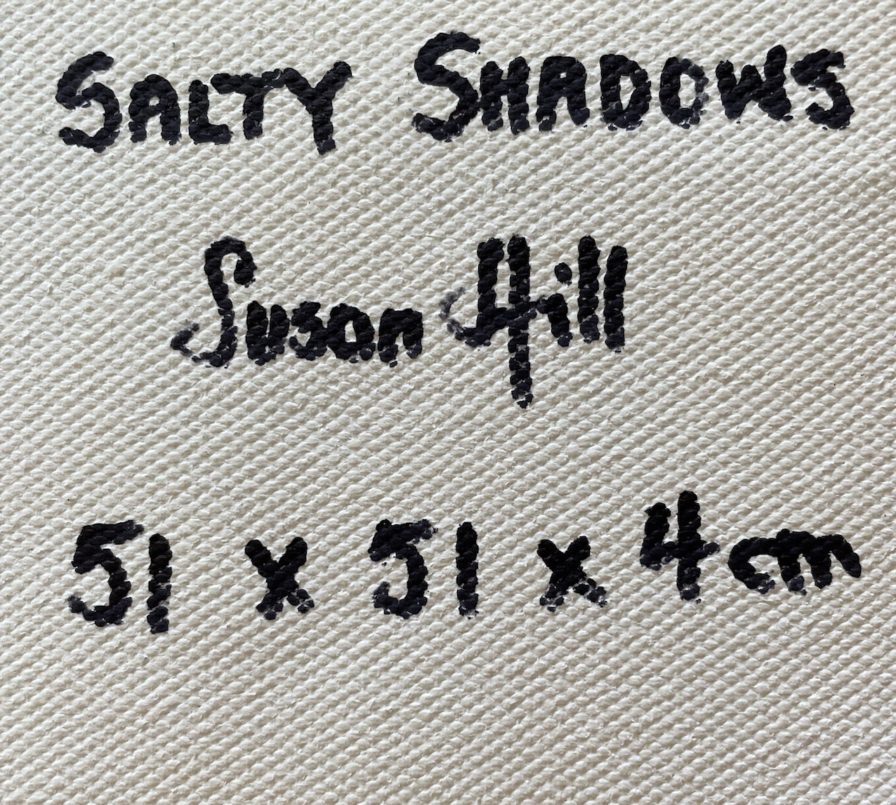 SALTY SHADOWS
Susan Hill
51 x 51 x 4cm